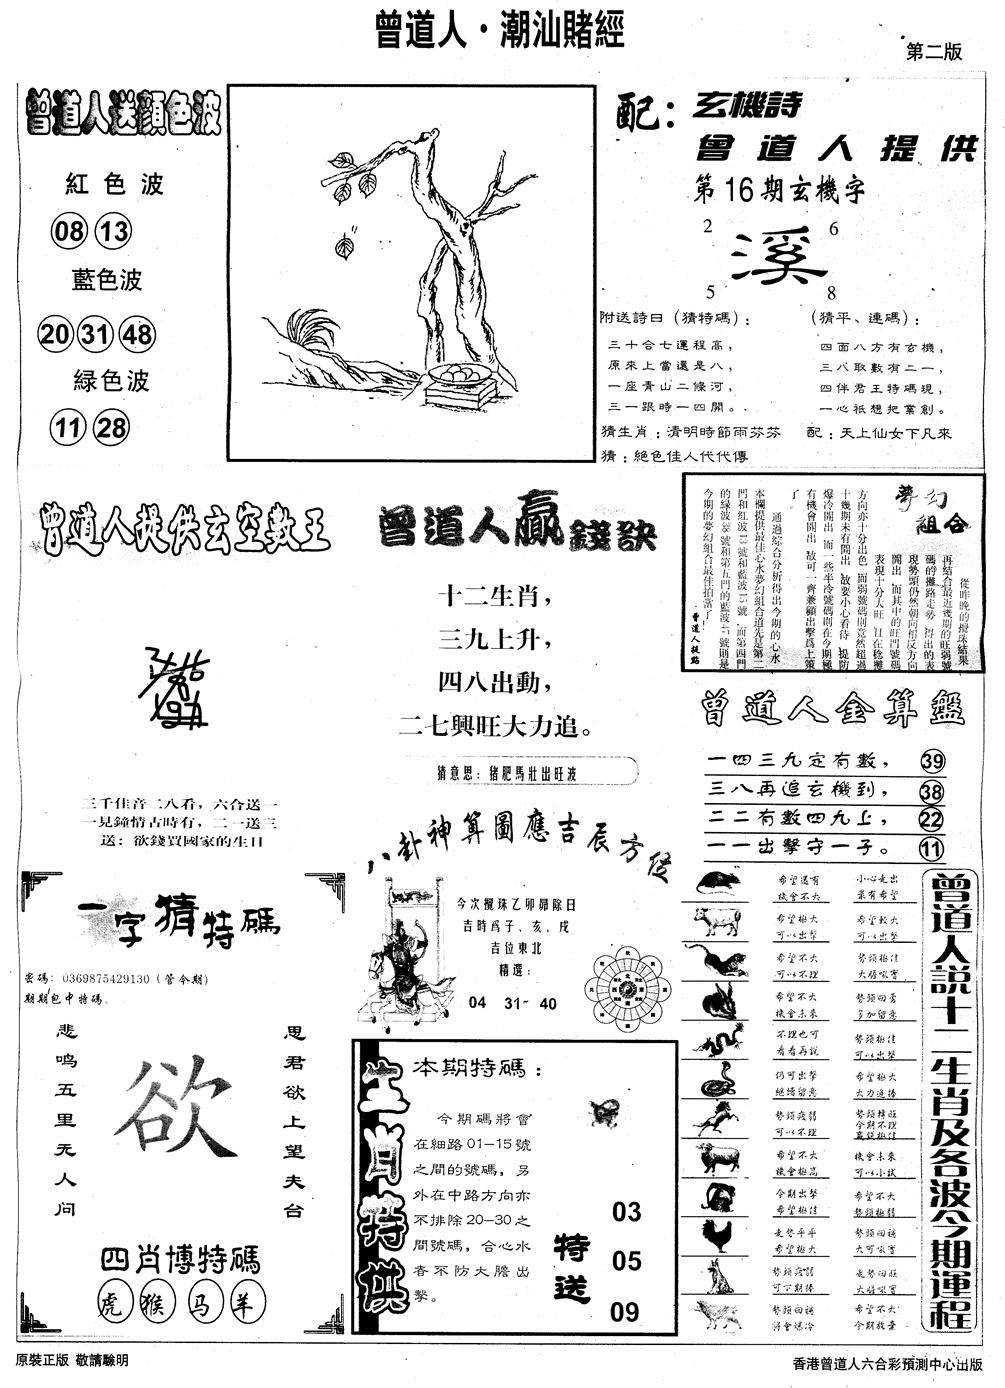 曾道人·潮汕賭經
第二版
曾道人送顏色波
紅色波
08 13
藍色波
20 31 48
緑色波
11 28
配：玄機詩
曾道人提供
第16期玄機字
2 6
溪
5 8
附送詩曰（猜特碼）：
三十合七運程高，
原來上當還是八，
一座青山二條河，
三一跟時一四開。
（猜平、連碼）：
四面八方有玄機，
三八取數有二一，
四伴君王特碼現，
一心祇想把業創。
猜生肖：清明時節雨芬芬
配：天上仙女下凡來
猜：絕色佳人代代傳
曾道人提供玄空數王
三千佳音二八看，六合送一
一見鐘情古時有，二一送三
送：欲錢買國家的生日
曾道人贏錢訣
十二生肖，
三九上升，
四八出動，
二七興旺大力追。
猜意思：猪肥馬壯出旺波
夢幻組合
從昨晚的攪珠結果
再結合最近幾期的旺弱號
碼的攤路走勢，得出的表
現勢頭仍然朝向相反方向
開出，而其中的旺門號碼
表現十分大旺，且在穩攤
方向亦十分出色，而弱號碼則竟然超過
十幾期未有開出，故要小心看待，提防
爆冷開出，而一些半冷號碼則在今期極
有機會開出，故可一齊兼顧出擊爲上策
了。
通過綜合分析得出今期的心水
本欄提供最佳心水夢幻組合道先是第二
門和紅波13號和藍波15號，而第四門
的綠波38號和第五門的藍波47號則是
今期的夢幻組合最佳拍當了！
曾道人提點
曾道人金算盤
一四三九定有數， 39
三八再追玄機到， 38
二二有數四九上， 22
一一出擊守一子。 11
八卦神算圖應吉辰方位
今次攪珠乙卯昴除日
吉時爲子、亥、戌
吉位東北
精選：
04 31- 40
一字猜特碼
密碼：0369875429130（管令期）
期期包中特碼。
悲鸣五里无人问
欲
思君欲上望夫台
四肖博特碼
虎 猴 马 羊
生肖特供
本期特碼：
今期碼將會
在細路01—15號
之間的號碼，另
外在中路方向亦
不排除20—30之
間號碼，合心水
者不防大膽出
擊。
特送
03
05
09
曾道人説十二生肖及各波今期運程
希望還有
機會不大
小心走出
最有希望
希望極大
可以出擊
希望較大
可以出擊
希望不大
可以不理
勢頭極佳
大膽吼實
希望不大
機會未來
勢頭回勇
多加留意
不理也可
看看再說
勢頭極佳
可以出擊
仍可出擊
繼續留意
希望極大
大力追捧
勢頭疲弱
可以不理
勢頭轉旺
今期不理
希望不大
機會極高
機會未來
可以小試
今期出擊
希望極佳
希望不大
勢頭極弱
走勢平平
希望極大
勢頭回穩
大可吼實
勢頭疲弱
可下期捧
走勢回旺
大膽吼實
勢頭回穩
將會爆冷
希望不大
今期放棄
原裝正版 敬請驗明
香港曾道人六合彩預測中心出版